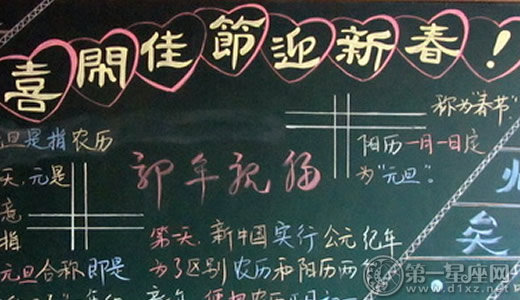 喜閙佳節迎新春!
旦是指农历
天,元是
意
指
元旦合称即是
新年祝福
称为"春节"
阳历一月一日定
为"元旦"。
第一天,新中国实行公元纪年
为了区别农历和阳历两
矣
第一星座网
www.d1xz.net